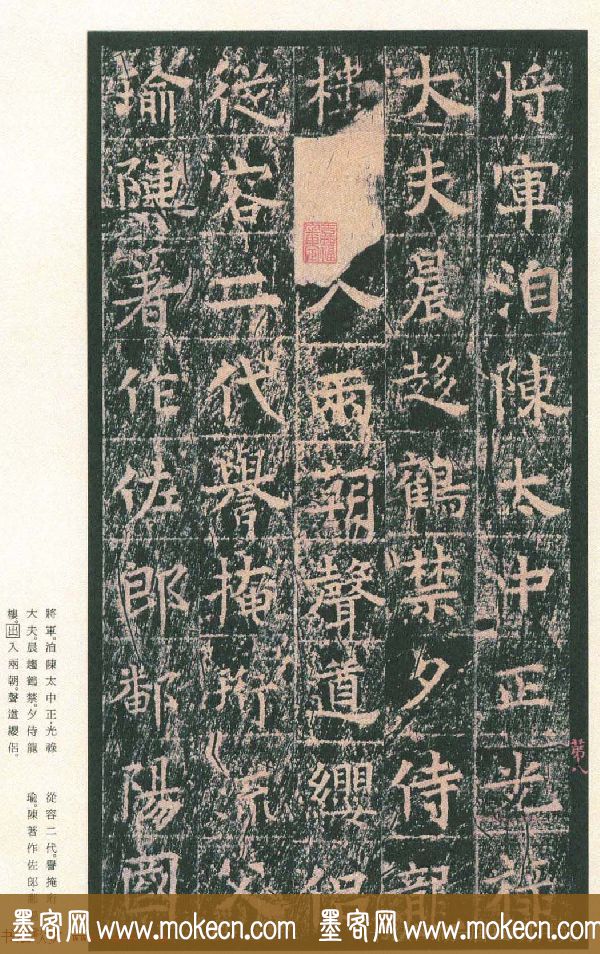 将軍洎陳太中正光祿
大夫晨趍鶴禁夕侍龍
樓入兩朝聲道纓侣
從容二代譽掩珩流父
瑜陳著作佐郎鄱陽國
第八
將軍。洎陳太中正。光祿
大夫。晨趨鶴禁。夕侍龍
樓。出入兩朝。聲道纓侶。
從容二代。譽掩
瑜。陳著作佐郎
墨客网 www.mokecn.com 墨客网 www.mokecn.com